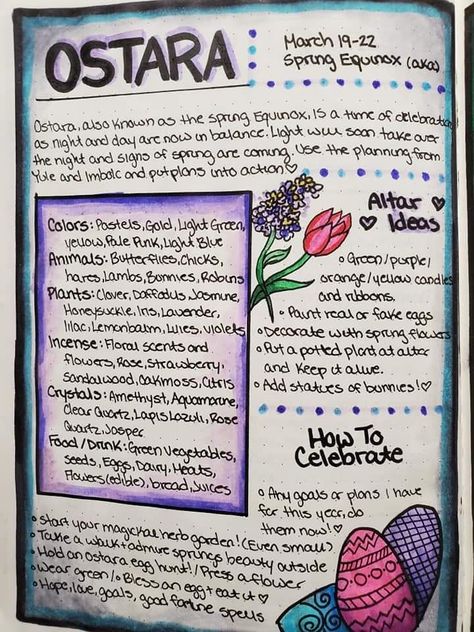 OSTARA
March 19-22
Spring Equinox (aka)
Ostara, also known as the spring Equinox, is a time of celebration
as night and day are now in balance. Light will soon take over
the night and signs of spring are coming. Use the planning from
Yule and Imbolc and put plans into action♡
Colors: Pastels, Gold, Light Green,
yellow, Pale Pink, Light Blue
Animals: Butterflies, Chicks,
hares, Lambs, Bunnies, Robins
Plants: Clover, Daffodils, Jasmine,
Honeysuckle, Iris, Lavender,
lilac, Lemonbalm, Lilies, violets
Incense: Floral scents and
flowers, Rose, Strawberry,
Sandalwood, Oakmoss, Citris
Crystals: Amethyst, Aquamarine,
Clear Quartz, Lapis Lazuli, Rose
Quartz, Jasper
Food/Drink: Green vegetables,
seeds, Eggs, Dairy, Meats,
Flowers (edible), bread, Juices
Altar
♥ Ideas ♥
• Green/purple/
orange/yellow candles
and ribbons.
• Paint real or fake eggs
• Decorate with spring flowers
• Put a potted plant at alter
and keep it alive.
• Add statues of bunnies!♡
How To
Celebrate
• Any goals or plans I have
for this year, do
them now!♡
• Start your magickal herb garden! (Even small)
• Take a walk + admire springs beauty outside
• Hold an Ostara egg hunt! / Press a flower
• Wear green / • Bless an egg + eat it♡
• Hope, love, goals, good fortune spells